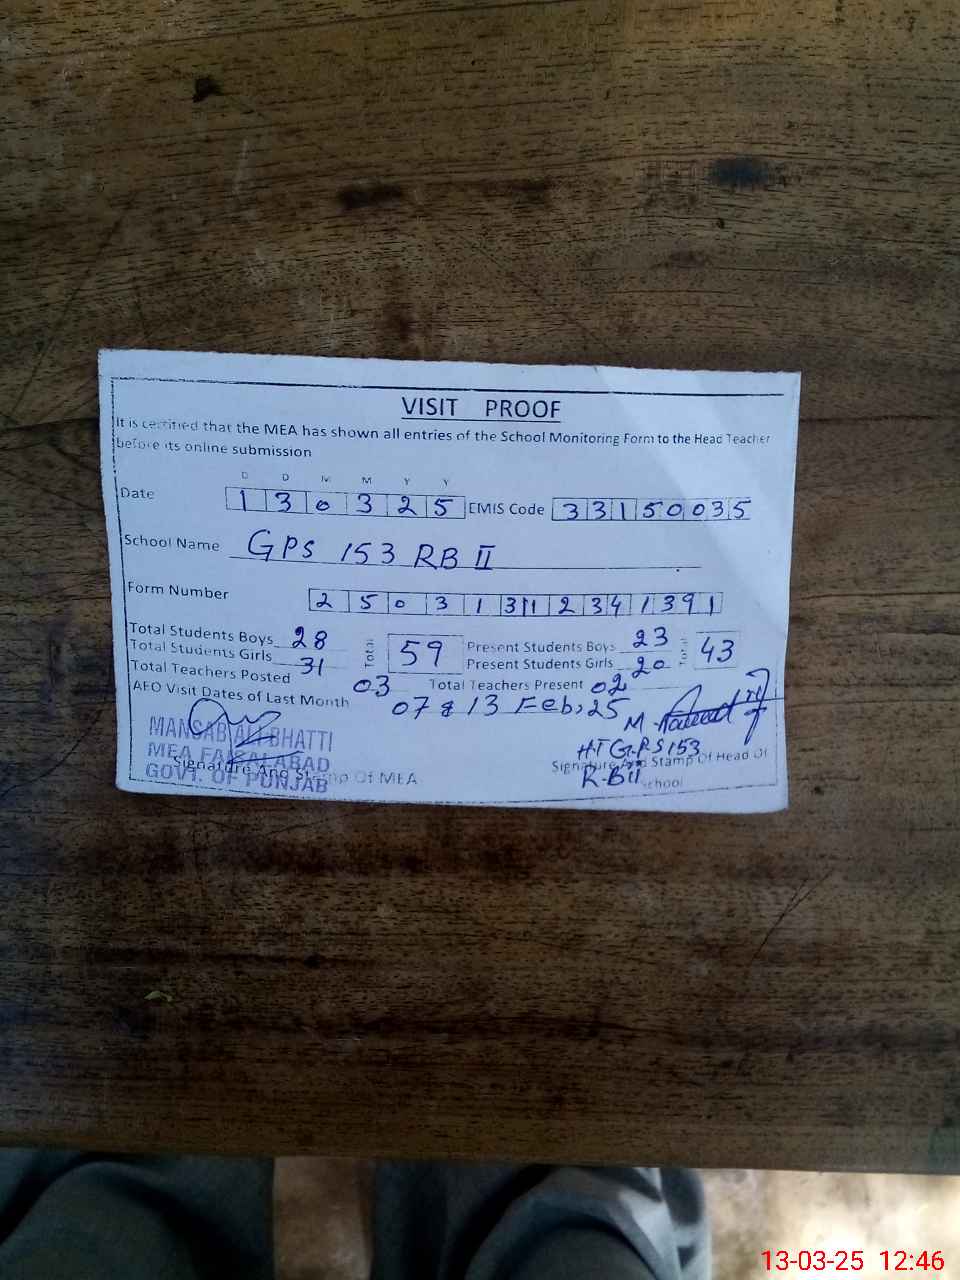 VISIT PROOF
It is certified that the MEA has shown all entries of the School Monitoring Form to the Head Teacher
before its online submission
D D M M Y Y
Date 1 3 0 3 2 5 EMIS Code 3 3 1 5 0 0 3 5
School Name GPS 153 RB II
Form Number 2 5 0 3 1 3 1 1 2 3 4 1 3 9 1
Total Students Boys 28 Total 59 Present Students Boys 23 Total 43
Total Students Girls 31 Present Students Girls 20
Total Teachers Posted 03 Total Teachers Present 02
AEO Visit Dates of Last Month 07 & 13 Feb, 25
MANSAB ALI BHATTI
MEA FAISALABAD
GOVT. OF PUNJAB
Signature And Stamp Of MEA
M.
HT GPS 153
R-B II
Signature And Stamp Of Head Of
School
13-03-25 12:46